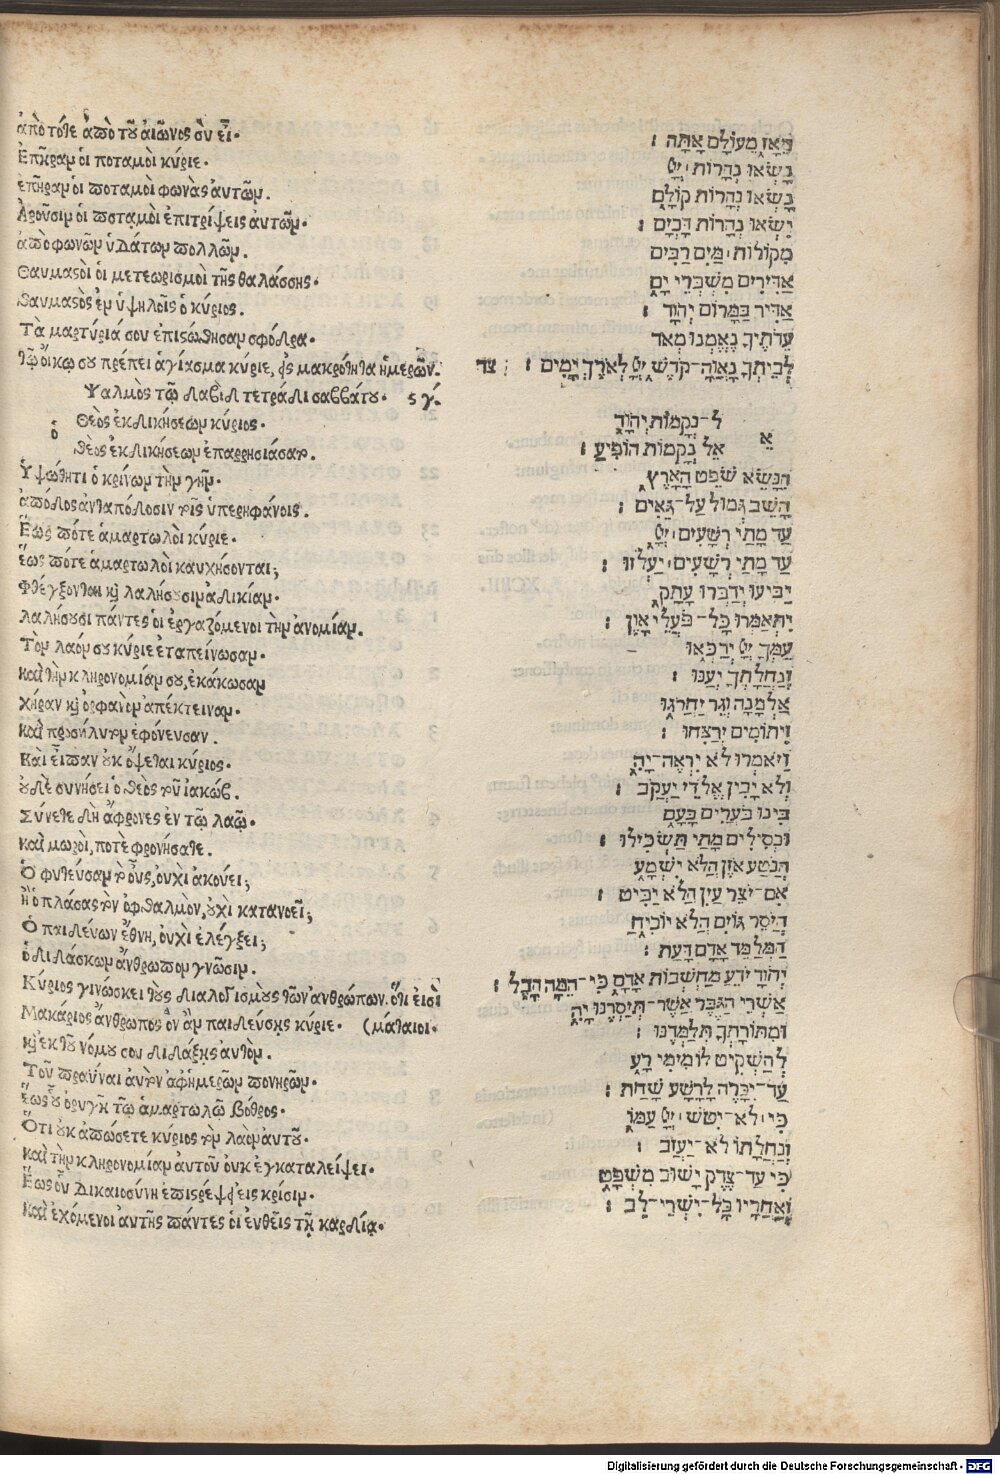 ἀπὸ τότε ἀπὸ τοῦ αἰῶνος σὺ εἶ.
Ἐπῆραν οἱ ποταμοὶ κύριε.
ἐπῆραν οἱ ποταμοὶ φωνὰς αὐτῶν.
Ἀροῦσιν οἱ ποταμοὶ ἐπιτρίψεις αὐτῶν.
ἀπὸ φωνῶν ὑδάτων πολλῶν.
Θαυμαστοὶ οἱ μετεωρισμοὶ τῆς θαλάσσης.
θαυμαστὸς ἐν ὑψηλοῖς ὁ κύριος.
Τὰ μαρτύριά σου ἐπιστώθησαν σφόδρα.
Τῷ οἴκῳ σου πρέπει ἁγίασμα κύριε, εἰς μακρότητα ἡμερῶν.
Ψαλμὸς τῷ δαβὶδ τετράδι σαββάτου. ϛγ.
Θεὸς ἐκδικήσεων κύριος.
ὁ
θεὸς ἐκδικήσεων ἐπαρρησιάσατο.
Ὑψώθητι ὁ κρίνων τὴν γῆν.
ἀπόδος ἀνταπόδοσιν τοῖς ὑπερηφάνοις.
Ἕως πότε ἁμαρτωλοὶ κύριε.
ἕως πότε ἁμαρτωλοὶ καυχήσονται;
Φθέγξονται καὶ λαλήσουσιν ἀδικίαν.
λαλήσουσι πάντες οἱ ἐργαζόμενοι τὴν ἀνομίαν.
Τὸν λαόν σου κύριε ἐταπείνωσαν.
καὶ τὴν κληρονομίαν σου, ἐκάκωσαν
χήραν καὶ ὀρφανὸν ἀπέκτειναν.
καὶ προσήλυτον ἐφόνευσαν.
Καὶ εἶπαν οὐκ ὄψεται κύριος.
οὐδὲ συνήσει ὁ θεὸς τοῦ ἰακώβ.
Σύνετε δὴ ἄφρονες ἐν τῷ λαῷ.
καὶ μωροὶ, ποτὲ φρονήσατε.
Ὁ φυτεύσας τὸ οὖς, οὐχὶ ἀκούει;
ἢ ὁ πλάσας τὸν ὀφθαλμὸν, οὐχὶ κατανοεῖ;
Ὁ παιδεύων ἔθνη, οὐχὶ ἐλέγξει;
ὁ διδάσκων ἄνθρωπον γνῶσιν.
Κύριος γινώσκει τοὺς διαλογισμοὺς τῶν ἀνθρώπων. ὅτι εἰσὶ
Μακάριος ἄνθρωπος ὃν ἂν παιδεύσῃς κύριε. (μάταιοι.
καὶ ἐκ τοῦ νόμου σου διδάξῃς αὐτὸν.
Τοῦ πραΰναι αὐτὸν ἀφ' ἡμερῶν πονηρῶν.
ἕως οὗ ὀρυγῇ τῷ ἁμαρτωλῷ βόθρος.
Ὅτι οὐκ ἀπώσεται κύριος τὸν λαὸν αὐτοῦ.
καὶ τὴν κληρονομίαν αὐτοῦ οὐκ ἐγκαταλείψει.
Ἕως οὗ δικαιοσύνη ἐπιστρέψῃ εἰς κρίσιν.
καὶ ἐχόμενοι αὐτῆς πάντες οἱ εὐθεῖς τῇ καρδίᾳ.
מֵאָז מֵעוֹלָם אָתָּה׃
נָשְׂאוּ נְהָרוֹת יְיָ
נָשְׂאוּ נְהָרוֹת קוֹלָם
יִשְׂאוּ נְהָרוֹת דָּכְיָם׃
מִקּוֹלוֹת מַיִם רַבִּים
אַדִּירִים מִשְׁבְּרֵי יָם
אַדִּיר בַּמָּרוֹם יְהוָֹד׃
עֵדֹתֶיךָ נֶאֶמְנוּ מְאֹד
לְבֵיתְךָ נַאֲוָה־קֹדֶשׁ יְיָ לְאֹרֶךְ יָמִים׃ צד
ל־נְקָמוֹת יְהוָֹד
א
אֵל נְקָמוֹת הוֹפִיעַ׃
הִנָּשֵׂא שֹׁפֵט הָאָרֶץ
הָשֵׁב גְּמוּל עַל־גֵּאִים׃
עַד מָתַי רְשָׁעִים יְיָ
עַד מָתַי רְשָׁעִים יַעֲלֹזוּ׃
יַבִּיעוּ יְדַבְּרוּ עָתָק
יִתְאַמְּרוּ כָּל־פֹּעֲלֵי אָוֶן׃
עַמְּךָ יְיָ יְדַכְּאוּ
וְנַחֲלָתְךָ יְעַנּוּ׃
אַלְמָנָה וְגֵר יַהֲרֹגוּ
וִיתוֹמִים יְרַצֵּחוּ׃
וַיֹּאמְרוּ לֹא יִרְאֶה־יָהּ
וְלֹא יָבִין אֱלֹדֵי יַעֲקֹב׃
בִּינוּ בֹּעֲרִים בָּעָם
וּכְסִילִים מָתַי תַּשְׂכִּילוּ׃
הֲנֹטַע אֹזֶן הֲלֹא יִשְׁמָע
אִם־יֹצֵר עַיִן הֲלֹא יַבִּיט׃
הֲיֹסֵר גּוֹיִם הֲלֹא יוֹכִיחַ
הַמְלַמֵּד אָדָם דָּעַת׃
יְהוָֹד יֹדֵעַ מַחְשְׁבוֹת אָדָם כִּי־הֵמָּה הָבֶל׃
אַשְׁרֵי הַגֶּבֶר אֲשֶׁר־תְּיַסְּרֶנּוּ יָּהּ
וּמִתּוֹרָתְךָ תְלַמְּדֶנּוּ׃
לְהַשְׁקִיט לוֹ מִימֵי רָע
עַד־יִכָּרֶה לָרָשָׁע שָׁחַת׃
כִּי לֹא־יִטֹּשׁ יְיָ עַמּוֹ
וְנַחֲלָתוֹ לֹא־יַעֲזֹב׃
כִּי עַד־צֶדֶק יָשׁוּב מִשְׁפָּט
וְאַחֲרָיו כָּל־יִשְׁרֵי־לֵב׃
Digitalisierung gefördert durch die Deutsche Forschungsgemeinschaft - DFG